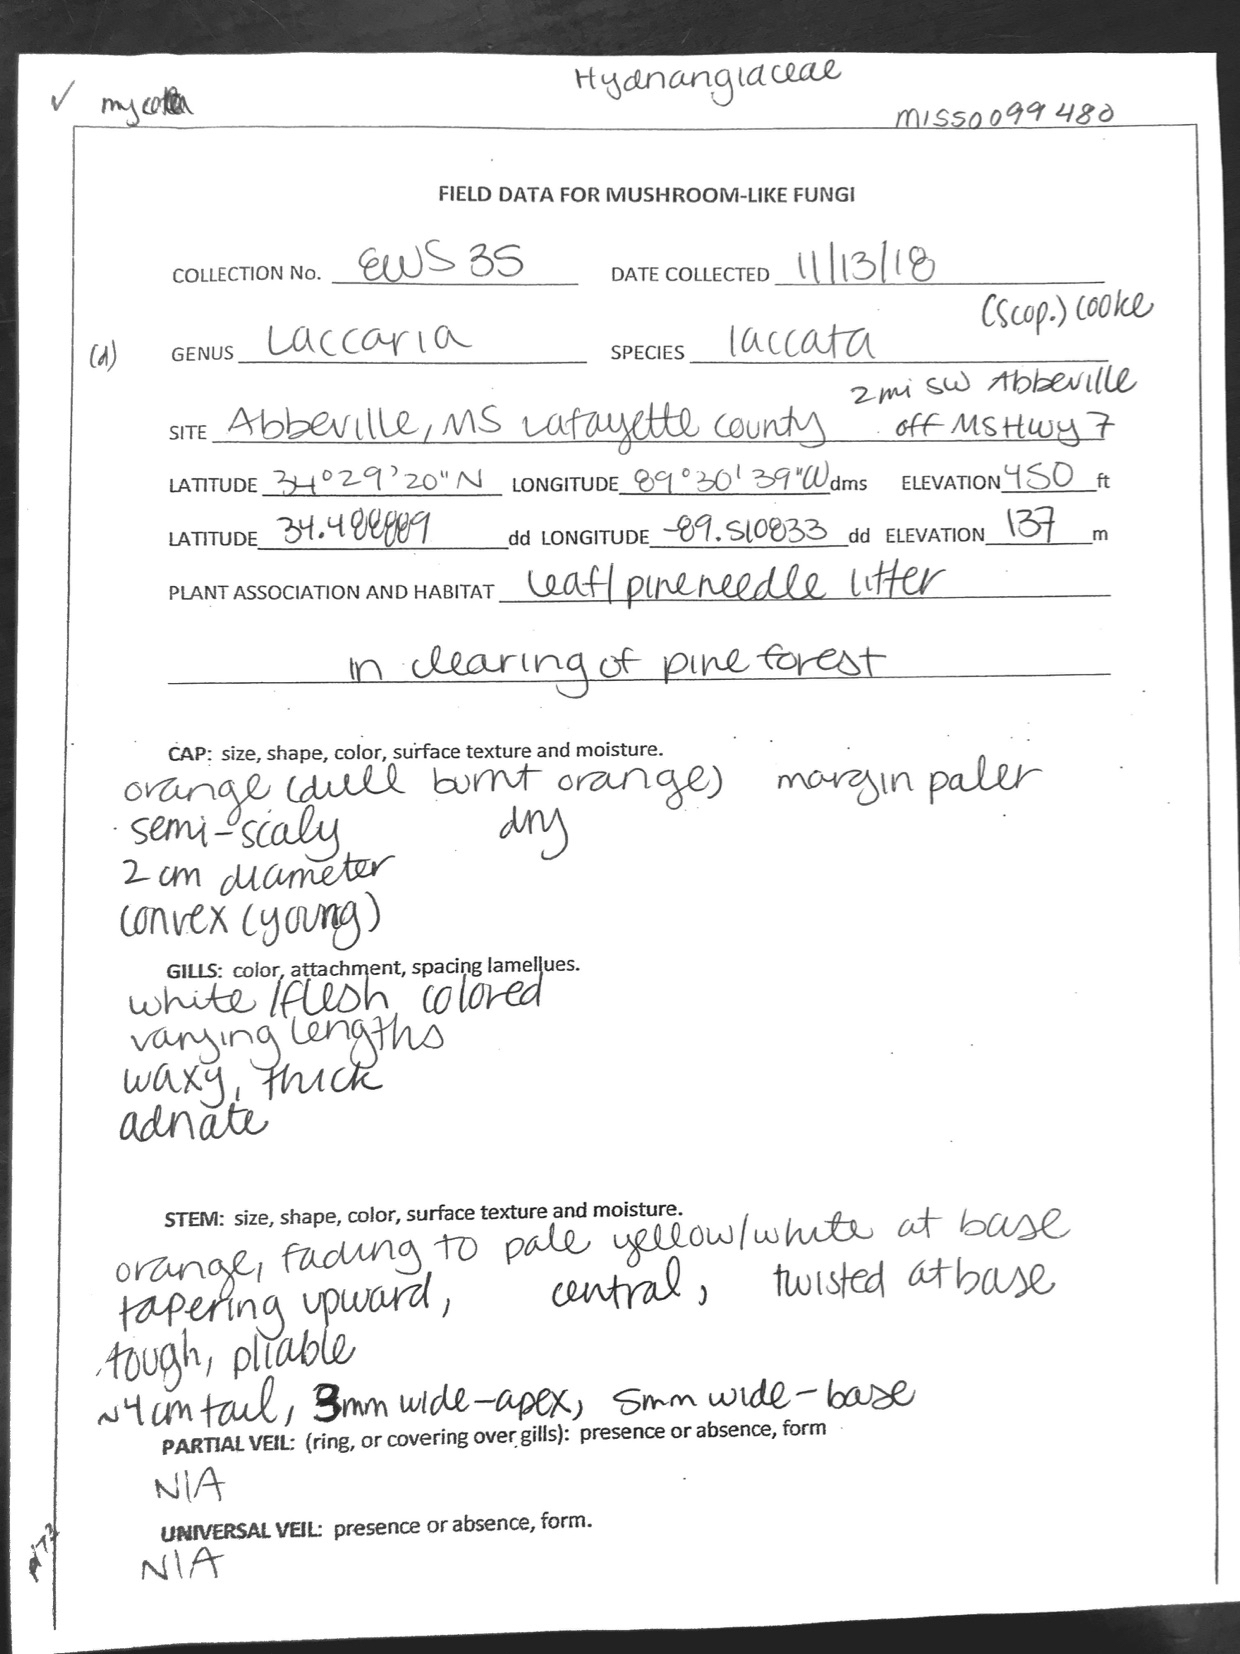 Hydnangiaceae
✓ mycota
MISS0099480
FIELD DATA FOR MUSHROOM-LIKE FUNGI
COLLECTION No. EWS 35 DATE COLLECTED 11/13/18
(Scop.) Cooke
(d) GENUS Laccaria SPECIES laccata
2 mi SW Abbeville
SITE Abbeville, MS Lafayette county off MS Hwy 7
LATITUDE 34°29'20"N LONGITUDE 89°30'39"W dms ELEVATION 450 ft
LATITUDE 34.488889 dd LONGITUDE -89.510833 dd ELEVATION 137 m
PLANT ASSOCIATION AND HABITAT leaf/pineneedle litter
in clearing of pine forest
CAP: size, shape, color, surface texture and moisture.
orange (dull burnt orange) margin paler
semi-scaly dry
2 cm diameter
convex (young)
GILLS: color, attachment, spacing lamellues.
white/flesh colored
varying lengths
waxy, thick
adnate
STEM: size, shape, color, surface texture and moisture.
orange, fading to pale yellow/white at base
tapering upward, central, twisted at base
tough, pliable
~4cm tall, 3mm wide-apex, 5mm wide-base
PARTIAL VEIL: (ring, or covering over gills): presence or absence, form
N/A
UNIVERSAL VEIL: presence or absence, form.
N/A